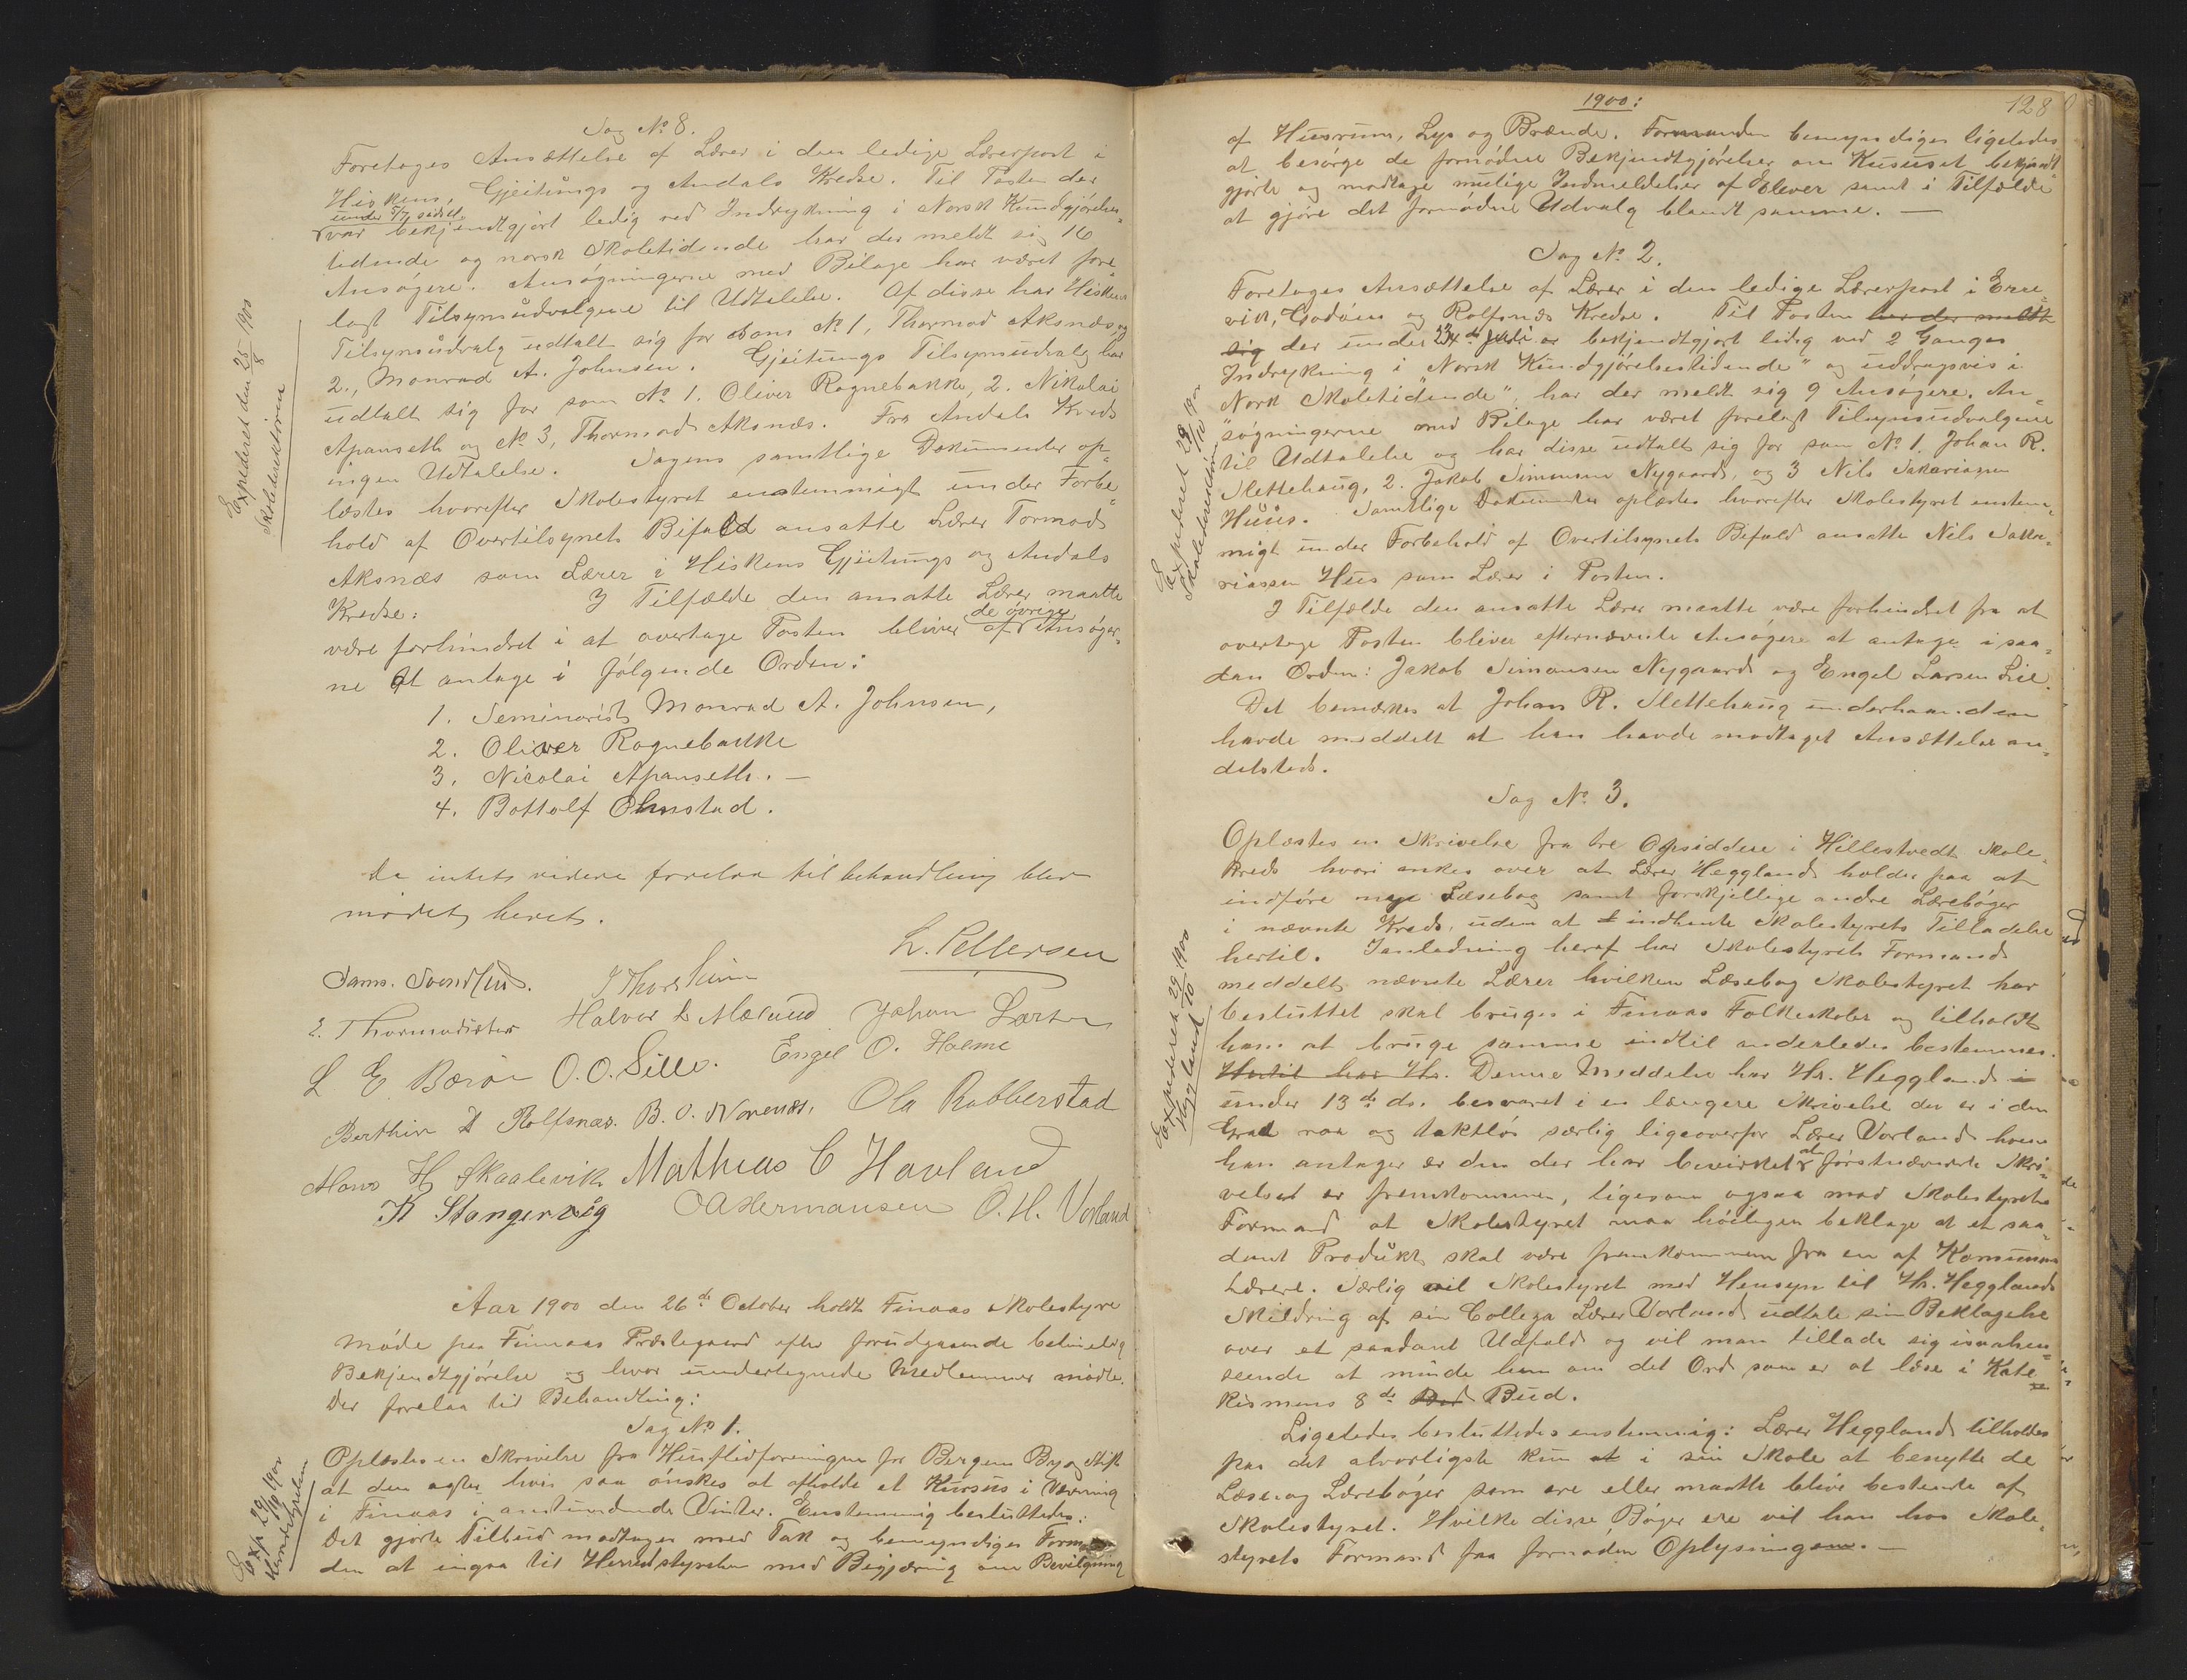 Sag No 8.
Foretoges Ansættelse af Lærer i den ledige Lærerpost i
Hiskens, Gjeitungs og Andals Kredse. Til Posten der
under 5/7 sidstl.
var bekjendtgjort ledig ved Indrykning i Norsk Kundgjørelses-
tidende og norsk Skoletidende har der meldt sig 16
Ansøgere. Ansøgningerne med Bilage har været fore-
lagt Tilsynsudvalgene til Udtalelse. Af disse har Hiskens
Tilsynsudvalg udtalt sig for som No 1, Thormod Aksnæs og
2., Monrad A. Johnsen. Gjeitungs Tilsynsudvalg har
udtalt sig for som No 1. Oliver Rognebakke, 2. Nikolai
Apanseth og No 3, Thormod Aksnæs. Fra Andals Kreds
ingen Udtalelse. Sagens samtlige Dokumenter op-
læstes hvorefter Skolestyret enstemmigt under Forbe-
hold af Overtilsynets Bifald ansatte Lærer Tormod
Aksnæs som Lærer i Hiskens Gjeitungs og Andals
Kredse: I Tilfælde den ansatte Lærer maatte
være forhindret i at overtage Posten bliver af de øvrige Ansøger-
ne at antage i følgende Orden:
1. Seminarist Monrad A. Johnsen,
2. Oliver Rognebakke
3. Nicolai Apanseth. —
4. Bottolf Olmstad.
Expederet den 25/8 1900
Skoledirektøren
Da intet videre forelaa til behandling blev
mødet hevet.
L. Pettersen
Sams. Svendsen. J Thorsheim
E. Thormodsæter Halvor L Mæland Johan Larsen
L E Børøe O. O. Sille. Engel O. Holme
Berthin D Rolfsnæs. B. O. Norenæs, Ola Robberstad
Hans H Skaalevik Mathias C Havland
K Stangervåg O A Hermansen O. H. Vorland
Aar 1900 den 26de October holdt Finaas Skolestyre
Møde paa Finnaas Præstegaard efter forudgaaende betimelig
Bekjendtgjørelse og hvor undertegnede Medlemmer mødte.
Der forelaa til Behandling:
Sag No 1.
Oplæstes en Skrivelse fra Husflidforeningen for Bergens By og Stift
at den agter hvis saa ønskes at afholde et Kursus i Vævning
i Finaas i anstundende Vinter. Enstemmig besluttedes:
Det gjorte Tilbud modtages med Tak og bemyndiges Forman-
den at indgaa til Herredstyrelsen med Begjæring om Bevilgning
Exp. 29/10 1900
Herredstyrelsen
1900:
128
af Husrum, Lys og Brænde. Formanden bemyndiges ligeledes
at besørge de fornødne Bekjendtgjørelser om Kursuset bekjendt-
gjorte og modtage mulige Indmeldelser af Elever samt i Tilfælde
at gjøre det fornødne Udvalg blandt samme. —
Sag No 2.
Foretoges Ansættelse af Lærer i den ledige Lærerpost i Ere-
vik, Godøens og Rolfsnæs Kredse. Til Posten har der meldt
sig der under 23de Juli er bekjendtgjort ledig ved 2 Ganges
Indrykning i "Norsk Kundgjørelsestidende" og uddragsvis i
"Norsk Skoletidende", har der meldt sig 9 Ansøgere. An-
søgningerne med Bilage har været forelagt Tilsynsudvalgene
til Udtalelse og har disse udtalt sig for som No 1. Johan R.
Slettehaug, 2. Jakob Simonsen Nygaard, og 3 Nils Sakariasen
Huus. Samtlige Dokumenter oplæstes hvorefter Skolestyret enstem-
migt under Forbehold af Overtilsynets Bifald ansatte Nils Saka-
riassen Hus som Lærer i Posten.
I Tilfælde den ansatte Lærer maatte være forhindret fra at
overtage Posten bliver efternævnte Ansøgere at antage i saa-
dan Orden: Jakob Simonsen Nygaard og Engel Larsen Lie.
Det bemærkes at Johan R. Slettehaug underhaanden
havde meddelt at han havde modtaget Ansættelse an-
detsteds.
Expederet 29/10 1900
Skoledirektøren
Sag No 3.
Oplæstes en Skrivelse fra tre Opsiddere i Hillestvedt Skole-
kreds hvori ankes over at Lærer Heggland holder paa at
indføre nye Læsebog samt forskjellige andre Lærebøger
i nævnte Kreds, uden at indhente Skolestyrets Tilladelse
hertil. I anledning heraf har Skolestyrets Formand
meddelt nævnte Lærer hvilken Læsebog Skolestyret har
besluttet skal bruges i Finaas Folkeskoler og tilholdt
ham at bruge samme indtil anderledes bestemmes.
Hertil har Hr. Denne Meddelse har Hr. Heggland i
under 13de ds. besvaret i en længere Skrivelse der er i den
Grad raa og taktløs særlig ligeoverfor Lærer Vorland hvem
han antager er den der har bevirket at førstnævnte Skri-
velse er fremkommen, ligesom ogsaa mod Skolestyrets
Formand at Skolestyret maa høiligen beklage at et saa-
dant Produkt skal være fremkommen fra en af Komunens
Lærere. Særlig vil Skolestyret med Hensyn til Hr. Hegglands
Skildring af sin Collega Lærer Vorland udtale sin Beklagelse
over et saadant Udfald og vil man tillade sig i saahen-
seende at minde ham om det Ord som er at læse i Kate-
kismens 8de Bud Bud.
Ligeledes besluttedes enstemmig: Lærer Heggland tilholdes
paa det alvorligste kun at i sin Skole at benytte de
Læse og Lærebøger som ere eller maatte blive bestemte af
Skolestyret. Hvilke disse Bøger ere vil han hos Skole-
styrets Formand faa fornøden Oplysning. —
Expederet 29/10 1900
Heggland